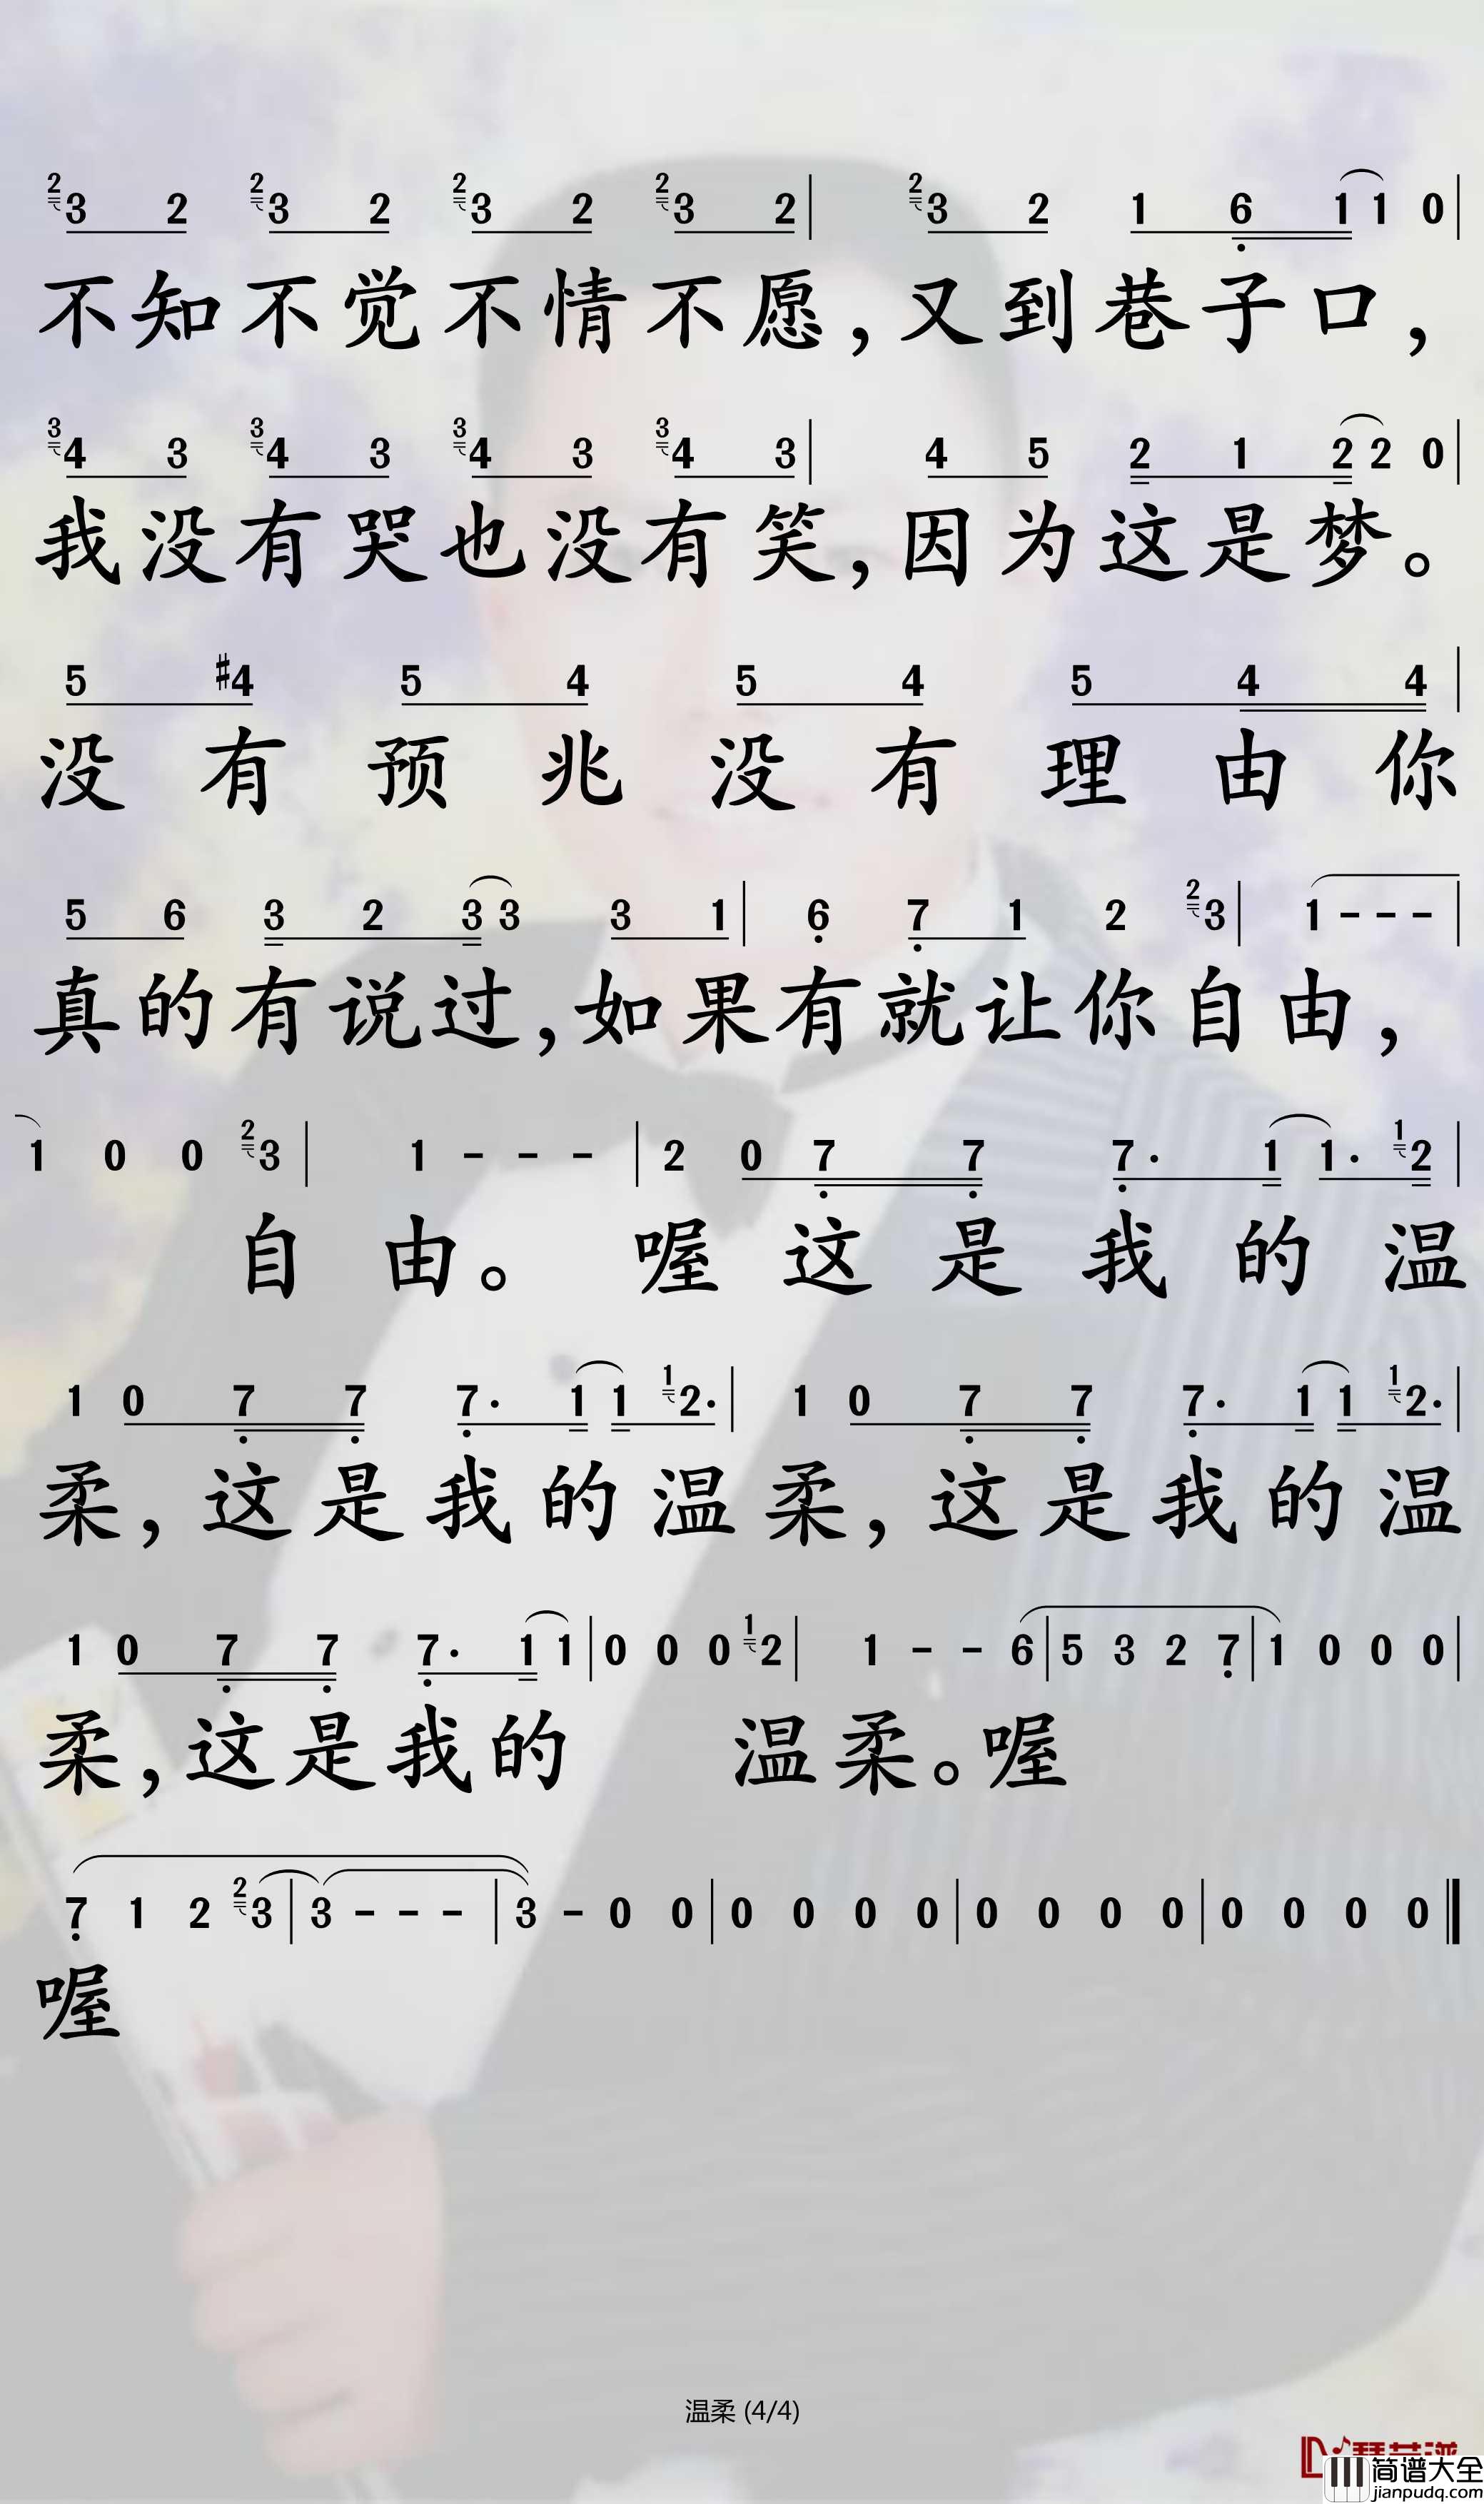 2 3 2 2 3 2 2 3 2 2 3 2 | 2 3 2 1 6 1 1 0 |
不知不觉不情不愿,又到巷子口,
3 4 3 3 4 3 3 4 3 3 4 3 | 4 5 2 1 2 2 0 |
我没有哭也没有笑,因为这是梦。
5 #4 5 4 5 4 5 4 4 |
没有预兆没有理由你
5 6 3 2 3 3 3 1 | 6 7 1 2 2 3 | 1 - - - |
真的有说过,如果有就让你自由,
1 0 0 2 3 | 1 - - - | 2 0 7 7 7· 1 1· 1 2 |
自由。喔这是我的温
1 0 7 7 7· 1 1 1 2· | 1 0 7 7 7· 1 1 1 2· |
柔,这是我的温柔,这是我的温
1 0 7 7 7· 1 1 | 0 0 0 1 2 | 1 - - 6 | 5 3 2 7 | 1 0 0 0 |
柔,这是我的 温柔。喔
7 1 2 2 3 | 3 - - - | 3 - 0 0 | 0 0 0 0 | 0 0 0 0 | 0 0 0 0 ‖
喔
温柔 (4/4)
简谱大全
jianpudq.com